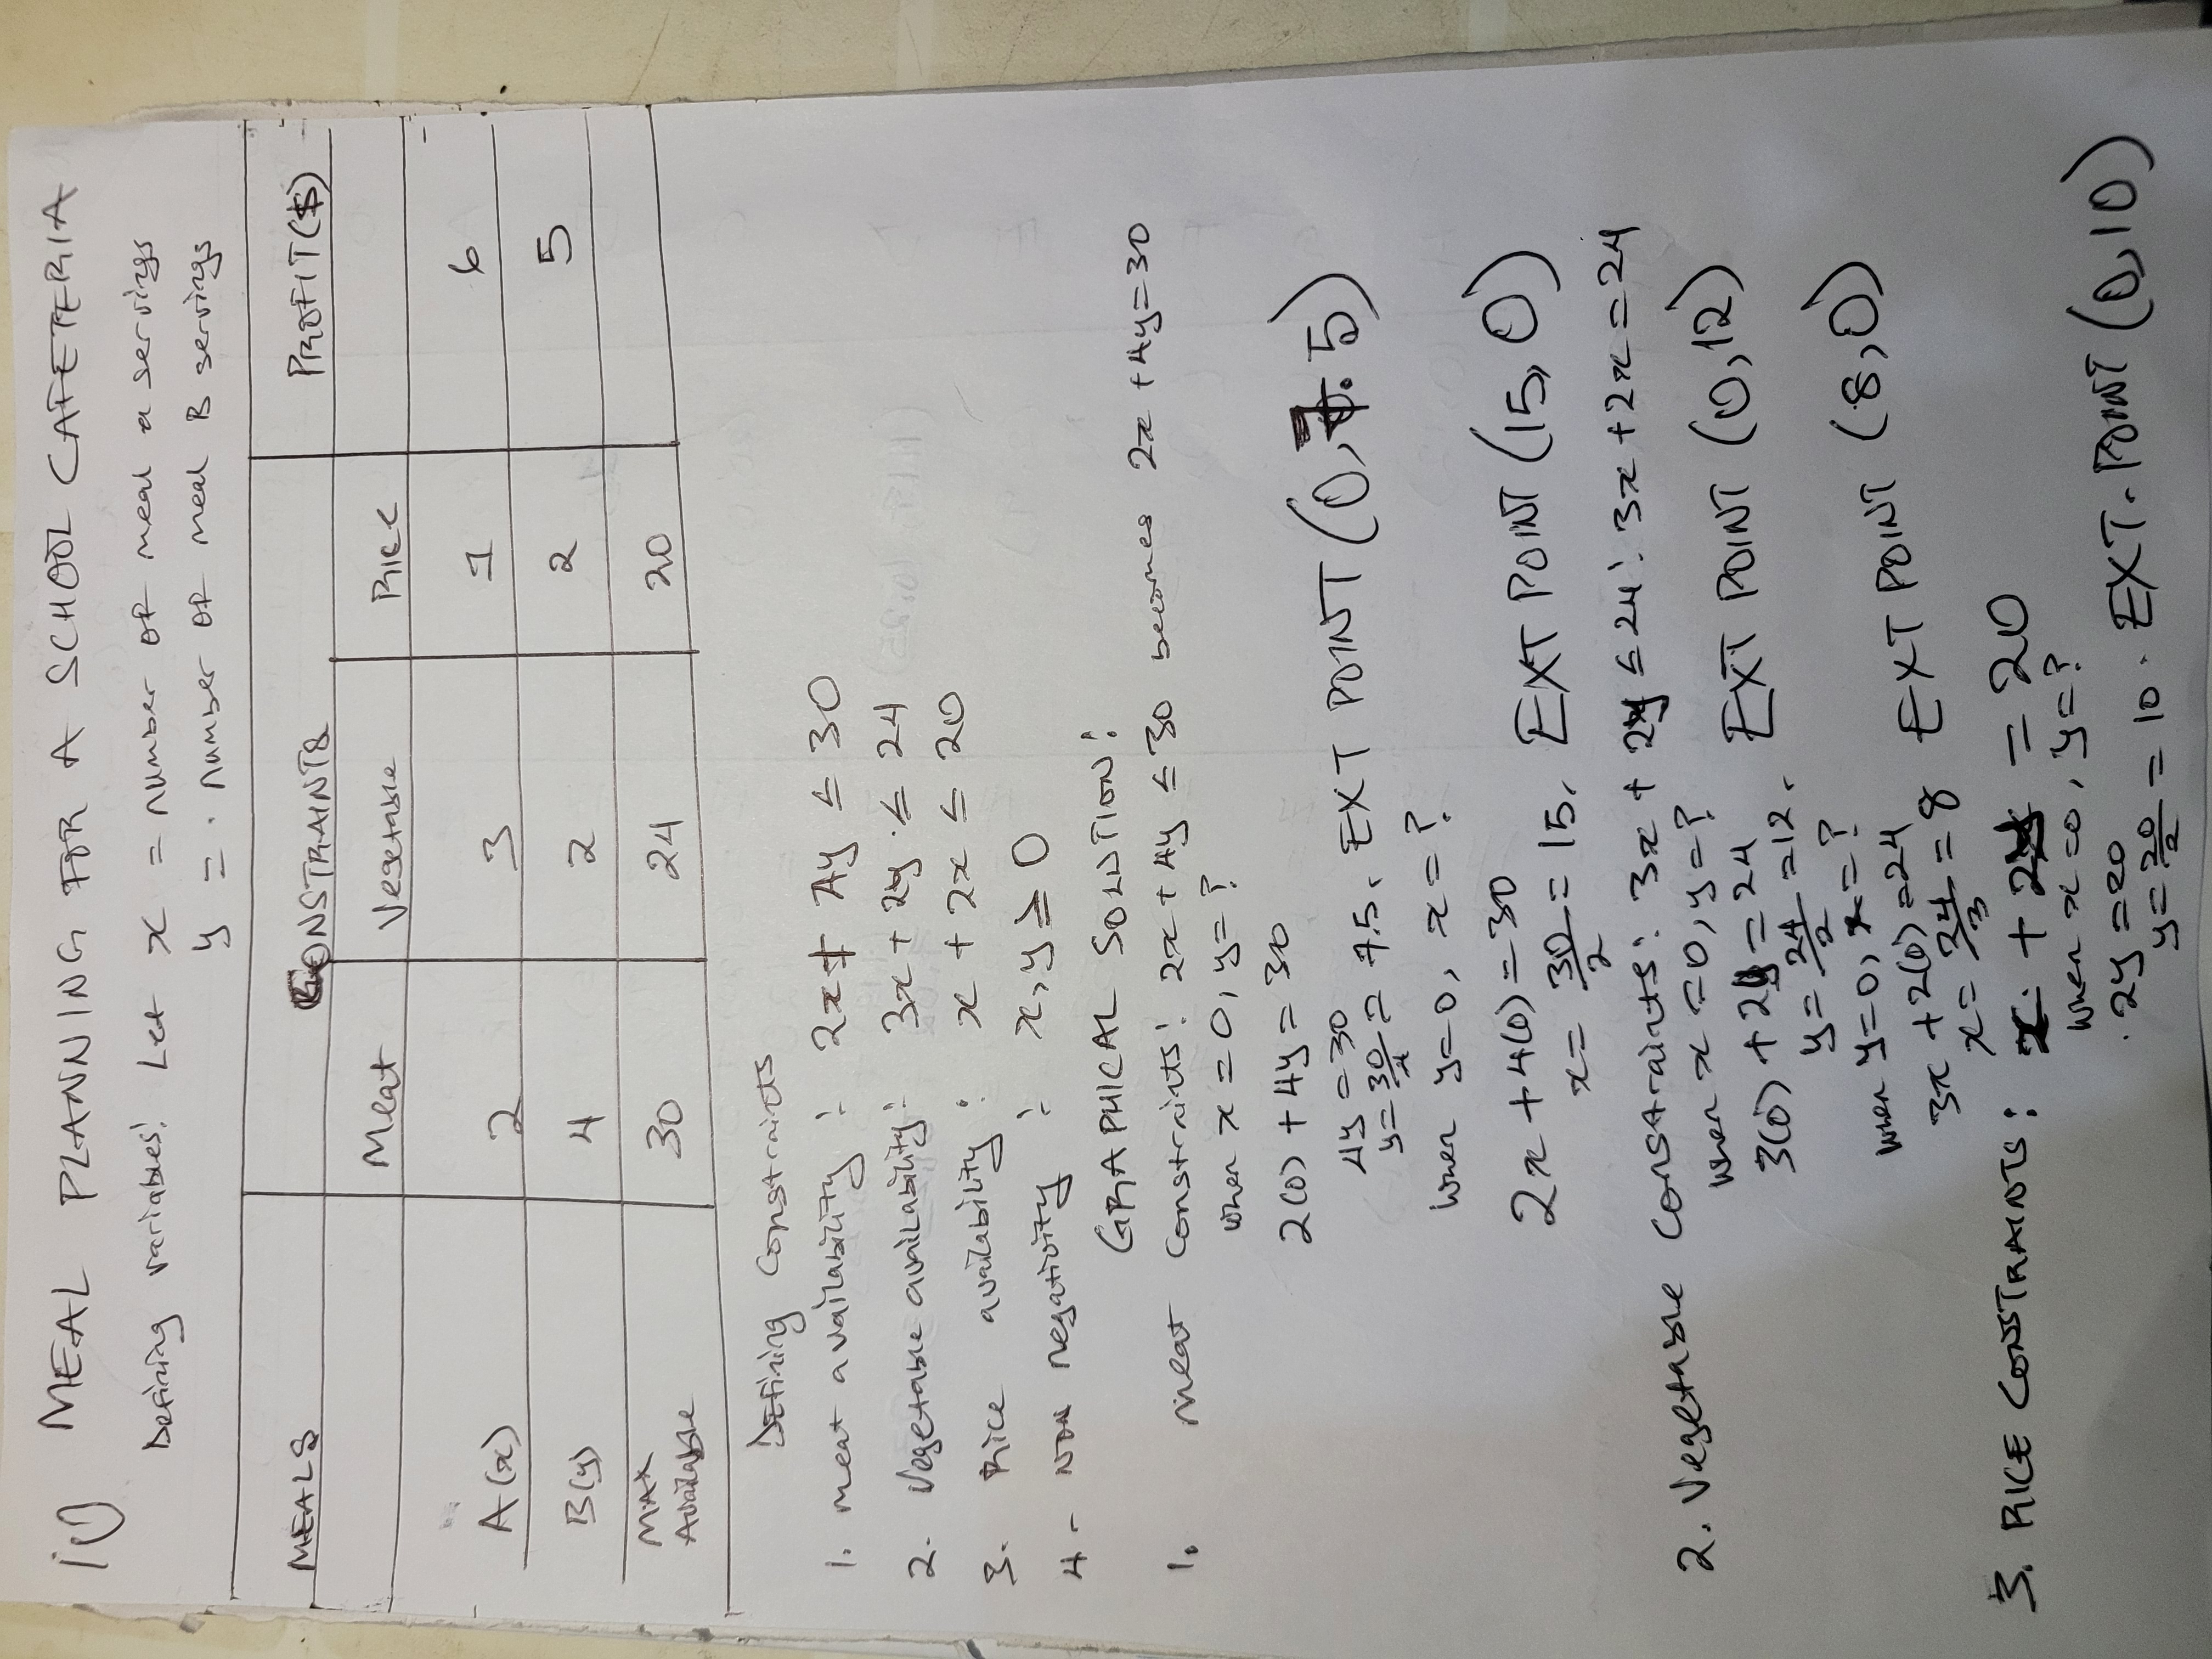 10) MEAL PLANNING FOR A SCHOOL CAFETERIA
Defining variables: Let x = number of meal a servings
y = number of meal B servings
MEALS CONSTRAINTS PROFIT($)
Meat Vegetable RICE
A(x) 2 3 1 6
B(y) 4 2 2 5
MAX Available 30 24 20
Defining Constraints
1. Meat availability : 2x + 4y ≤ 30
2. Vegetable availability: 3x + 2y ≤ 24
3. Rice availability : x + 2x ≤ 20
4 - NON negativity : x, y ≥ 0
GRAPHICAL SOLUTION:
1. Meat Constraints: 2x + 4y ≤ 30 becomes 2x + 4y = 30
when x = 0, y = ?
2(0) + 4y = 30
4y = 30
y = 30/4 = 7.5. EXT POINT (0, 7.5)
when y=0, x = ?
2x + 4(0) = 30
x = 30/2 = 15. EXT POINT (15, 0)
2. Vegetable Constraints: 3x + 2y ≤ 24: 3x + 2x = 24
when x = 0, y = ?
3(0) + 2y = 24
y = 24/2 = 12. EXT POINT (0,12)
when y=0, x = ?
3x + 2(0) = 24
x = 24/3 = 8 EXT POINT (8,0)
3. RICE CONSTRAINTS: x + 2y = 20
when x = 0, y = ?
2y = 20
y = 20/2 = 10. EXT. POINT (0,10)